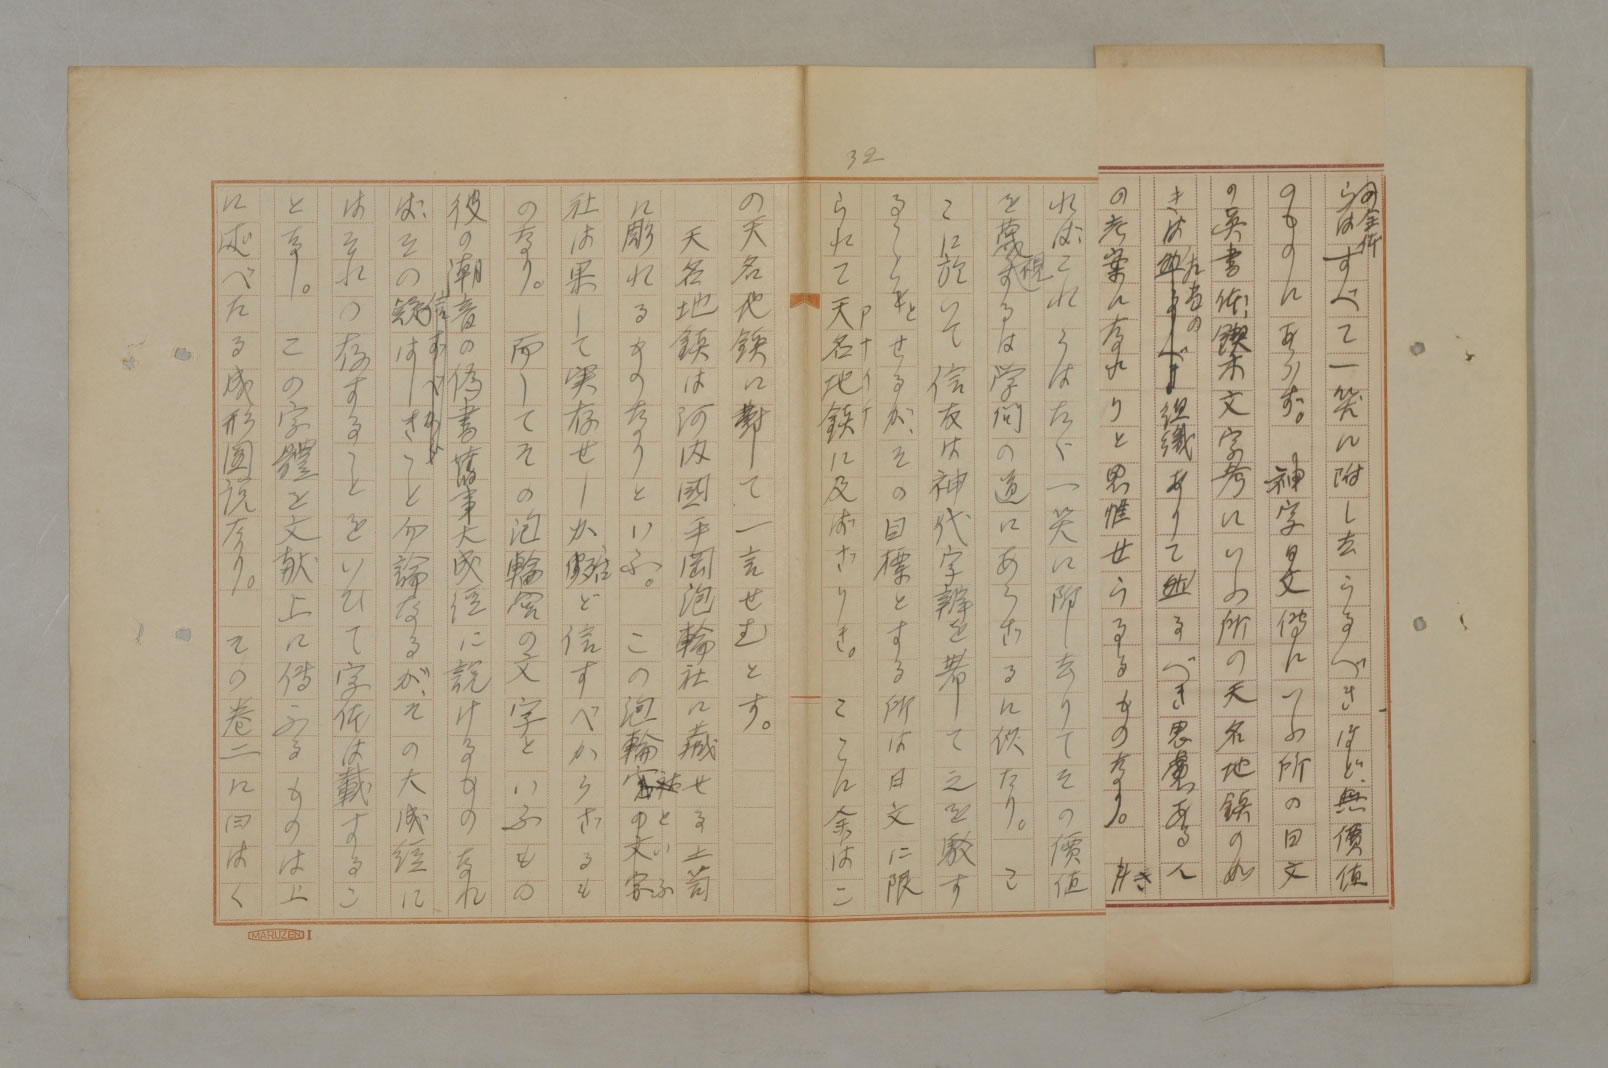 32
らはすべて一笑に附し去らるべきほど、無價値
の全体
のものにあらず。神字日文傳にいふ所の日文
の異書体、鏤木文字考にいふ所の天名地鎮の如
きは
相當の
組織ありて
るべき思慮ある人
の考案に存れりと思惟せらるるものなり。
さ
ればこれらはただ一笑に附し去りてその價値
を蔑視するは学問の道にあらざるに似たり。こ
こに於いて信友は神代字辨を著して之を駁す
ることとせるが、その目標とする所は日文に限
られて天名地鎮に及ばざりき。ここに余はこ
アナイチ
の天名地鎮に對して一言せむとす。
天名地鎮は河内國平岡泡輪社に藏せる土笥
に彫れるものなりといふ。この泡輪
社といふ
社は果して実存せしか
ど信すべからざるも
のなり。而してその泡輪宮の文字といふもの
彼の潮音の偽書舊事大成経に説けるものなれ
ば、その
信ずべから
はしきこと勿論なるが、その大成経に
はそれの存することをいひて字体は載するこ
となし。この字體を文献上に傳ふるものは上
に述べたる成形圖説なり。その巻二に曰はく
MARUZEN I